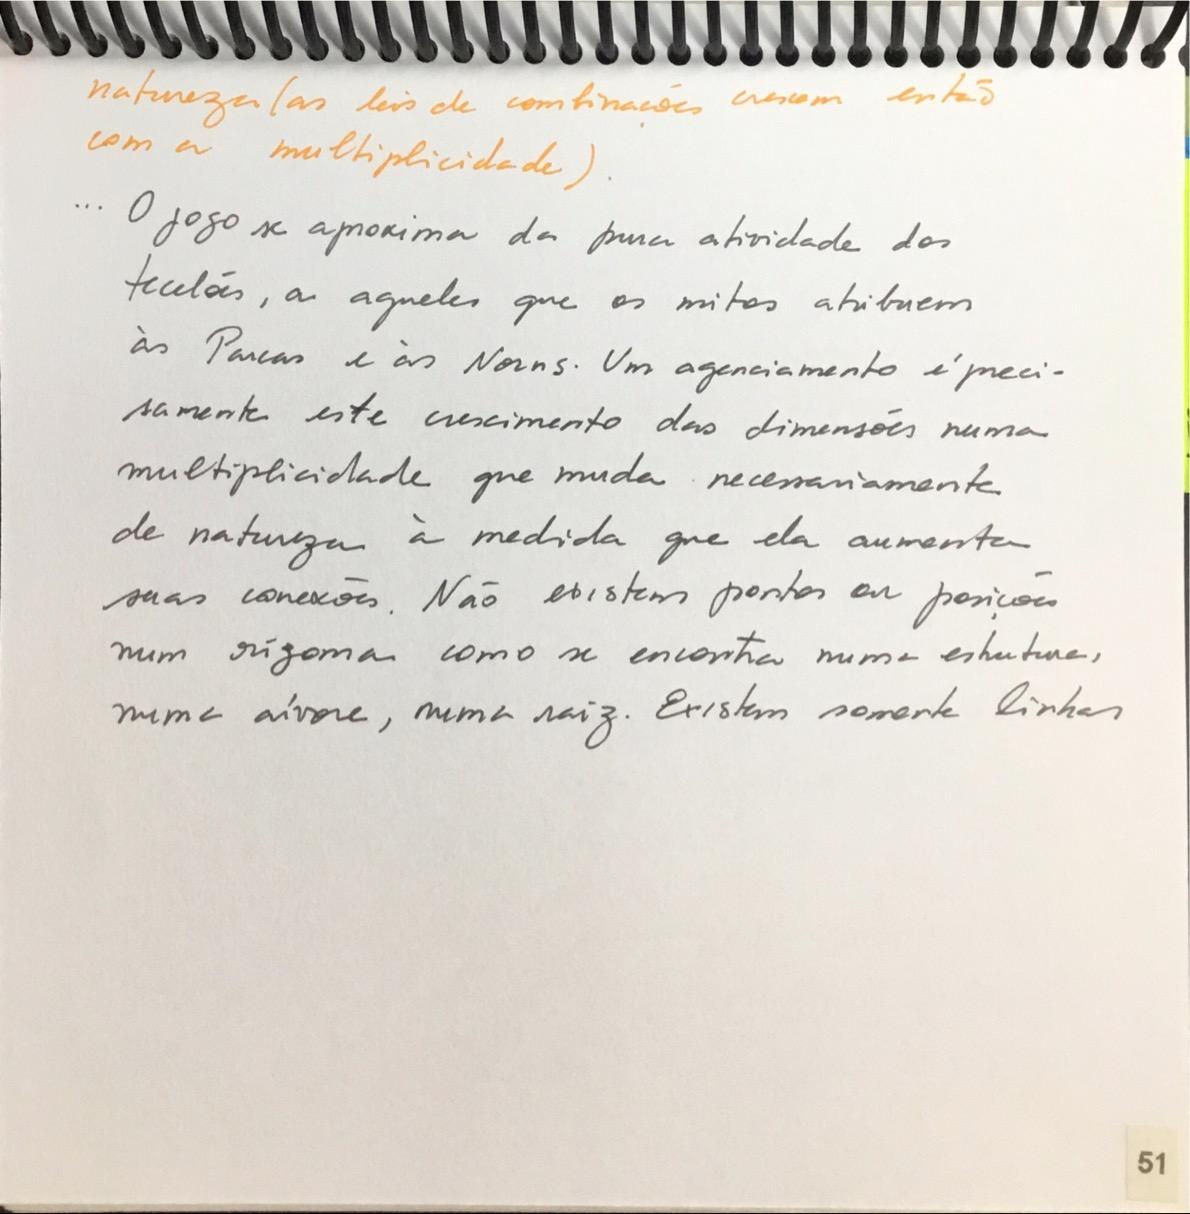 natureza (as leis de combinações crescem então
com a multiplicidade).
... O jogo se aproxima da pura atividade dos
tecelões, a aqueles que os mitos atribuem
às Parcas e às Norns. Um agenciamento é preci-
samente este crescimento das dimensões numa
multiplicidade que muda necessariamente
de natureza à medida que ela aumenta
suas conexões. Não existem pontos ou posições
num rizoma como se encontra numa estrutura,
numa árvore, numa raiz. Existem somente linhas
51